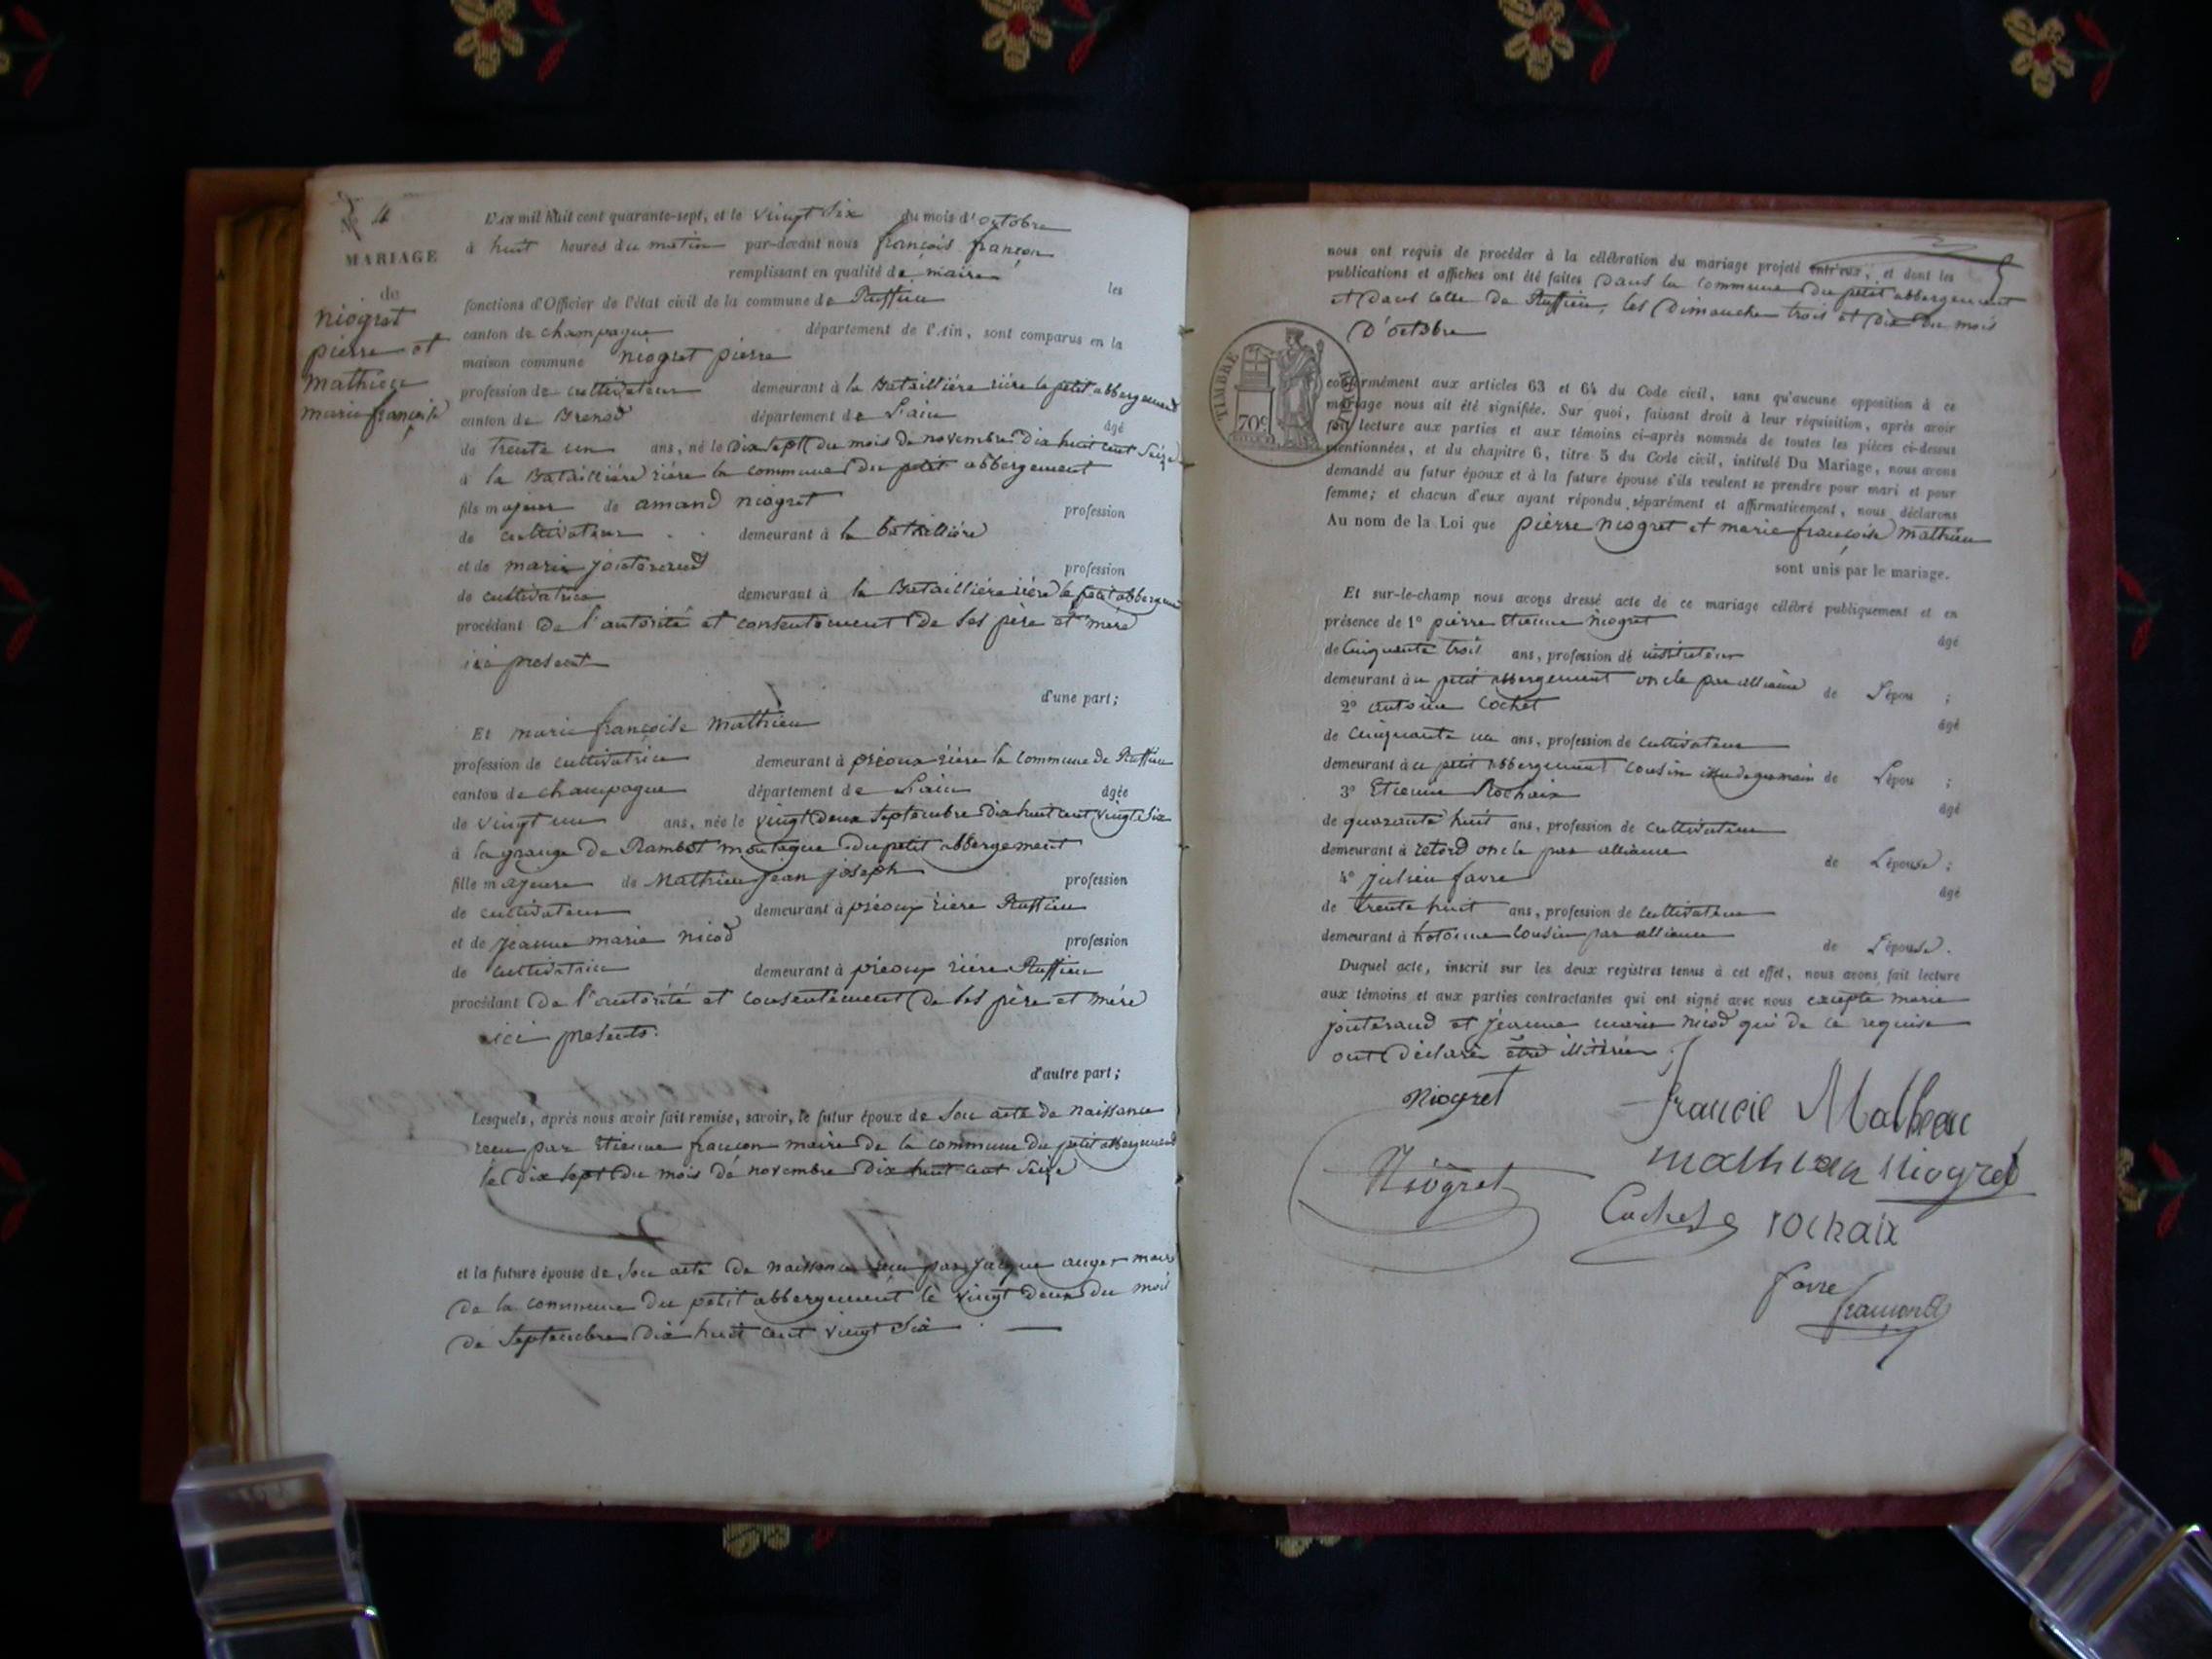 N° 4
MARIAGE
de
niogret
pierre et
mathieu
marie françoise
L'AN mil huit cent quarante-sept, et le vingt six du mois d'octobre
à huit heures du matin par-devant nous françois françon
remplissant en qualité de maire les
fonctions d'Officier de l'état civil de la commune de Ruffieu
canton de champagne département de l'Ain, sont comparus en la
maison commune niogret pierre
profession de cultivateur demeurant à la Batailliére riére le petit abbergement
canton de Brenod département de L'ain âgé
de trente un ans, né le dix sept du mois de novembre dix huit cent seize
à la Batailliére riére la commune du petit abbergement
fils majeur de amand niogret profession
de cultivateur demeurant à la batailliére
et de marie jouterand profession
de cultivatrice demeurant à la Batailliére riére le petit abbergement
procédant de l'autorité et consentement de ses pére et mére
ici present
d'une part;
Et marie françoise mathieu
profession de cultivatrice demeurant à riére la commune de Ruffieu
canton de champagne département de L'ain âgée
de vingt un ans, née le vingt deux septembre dix huit cent vingt six
à la grange de Rambot montagne du petit abbergement
fille majeure de Mathieu jean joseph profession
de cultivateur demeurant à riére Ruffieu
et de jeanne marie nicod profession
de cultivatrice demeurant à riére Ruffieu
procédant de l'autorité et consentement de ses pére et mére
ici presents.
d'autre part;
Lesquels, après nous avoir fait remise, savoir, le futur époux de son acte de naissance
recu par Etienne françon maire de la commune du petit abbergement
le dix sept du mois de novembre dix huit cent seize
et la future épouse de son acte de naissance recu par jacque auger maire
de la commune du petit abbergement le vingt deux du mois
de septembre dix huit cent vingt six
nous ont requis de procéder à la célébration du mariage projeté entr'eux, et dont les
publications et affiches ont été faites dans la commune du petit abbergement
et dans celle de Ruffieu, les dimanche trois et dix du mois
D'octobre
TIMBRE ROYAL
70c
conformément aux articles 63 et 64 du Code civil, sans qu'aucune opposition à ce
mariage nous ait été signifiée. Sur quoi, faisant droit à leur réquisition, après avoir
fait lecture aux parties et aux témoins ci-après nommés de toutes les pièces ci-dessus
mentionnées, et du chapitre 6, titre 5 du Code civil, intitulé Du Mariage, nous avons
demandé au futur époux et à la future épouse s'ils veulent se prendre pour mari et pour
femme; et chacun d'eux ayant répondu séparément et affirmativement, nous déclarons
Au nom de la Loi que pierre niogret et marie françoise mathieu
sont unis par le mariage.
Et sur-le-champ nous avons dressé acte de ce mariage célébré publiquement et en
présence de 1° pierre Etienne niogret âgé
de cinquante trois ans, profession de instituteur
demeurant à u petit abbergement oncle par alliance de L'époux ;
2° antoine Cochet âgé
de cinquante un ans, profession de cultivateur
demeurant à u petit abbergement cousin issu de germain de L'époux ;
3° Etienne Rochaix âgé
de quarante huit ans, profession de cultivateur
demeurant à retord oncle par alliance de L'épouse ;
4° julien favre âgé
de trente huit ans, profession de cultivateur
demeurant à hotonne cousin par alliance de L'épouse.
Duquel acte, inscrit sur les deux registres tenus à cet effet, nous avons fait lecture
aux témoins et aux parties contractantes qui ont signé avec nous excepte marie
jouterand et jeanne marie nicod qui de ce requise
ont déclaré être illitérée
niogret francoise Mathieu
Niogret mathieu niogret
Cochet rochaix
favre
francon